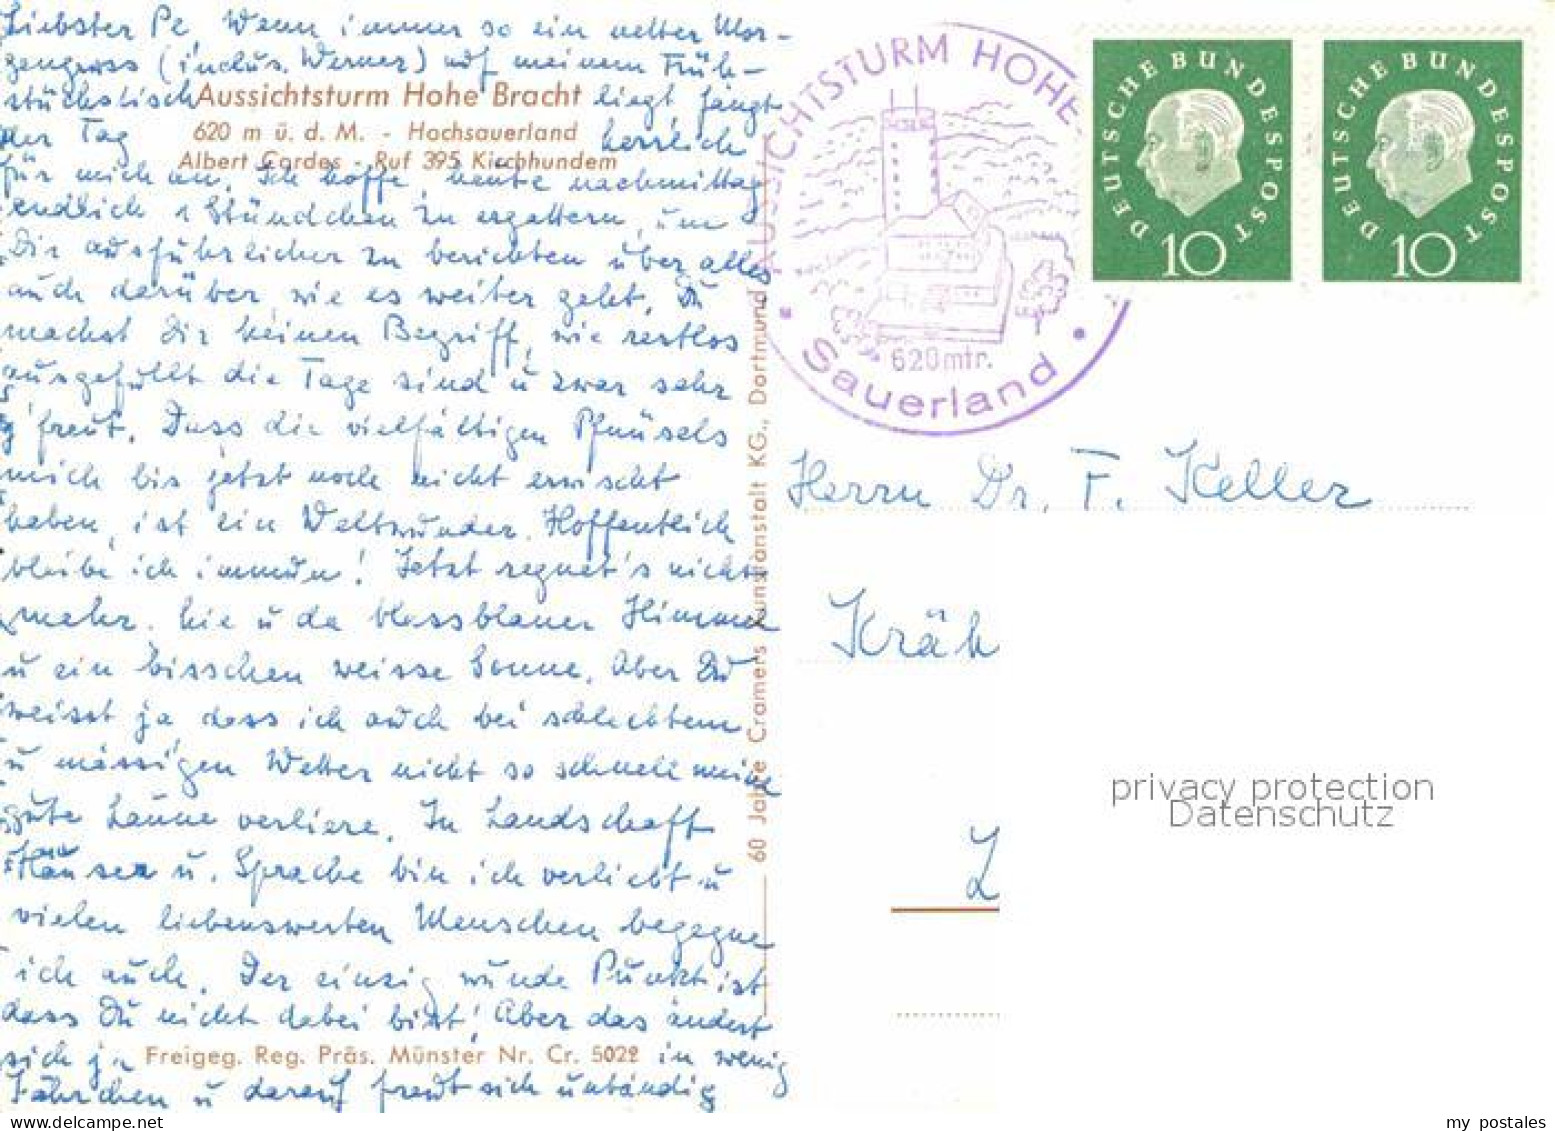 Liebster Pe Wenn immer so ein netter Mor-
gengruss (inclus. Werner) auf meinem Früh-
stückstisch liegt fängt
der Tag herrlich
Aussichtsturm Hohe Bracht
620 m ü. d. M. - Hochsauerland
Albert Cordes - Ruf 395 Kirchhundem
für mich an. Ich hoffe, heute nachmittag
endlich 1 Stündchen zu ergattern, um
Dir ausführlicher zu berichten über alles
auch darüber, wie es weiter geht. Du
machst Dir keinen Begriff, wie restlos
ausgefüllt die Tage sind u zwar sehr
g'freut. Dass die vielfältigen Pfnüsels
mich bis jetzt noch nicht erwischt
haben, ist ein Weltwunder. Hoffentlich
bleibe ich immun! Jetzt regnet's nicht
mehr. hie u da blassblauer Himmel
u ein bisschen weisse Sonne. Aber Du
weisst ja, dass ich auch bei schlechtem
u mässigen Wetter nicht so schnell meine
gute Laune verliere. In Landschaft
Häuser u. Sprache bin ich verliebt u
vielen liebenswerten Menschen begegne
ich auch. Der einzig wunde Punkt ist
dass Du nicht dabei bist! Aber das ändert
sich ja in wenig
Freigeg. Reg. Präs. Münster Nr. Cr. 5022
Jährchen u darauf freut sich unbändig
60 Jahre Cramers Kunstanstalt KG., Dortmund
AUSSICHTSTURM HOHE
620 mtr.
Sauerland
DEUTSCHE BUNDESPOST
10
DEUTSCHE BUNDESPOST
10
Herrn Dr. F. Keller
Kräh
Z
privacy protection
Datenschutz
my postales